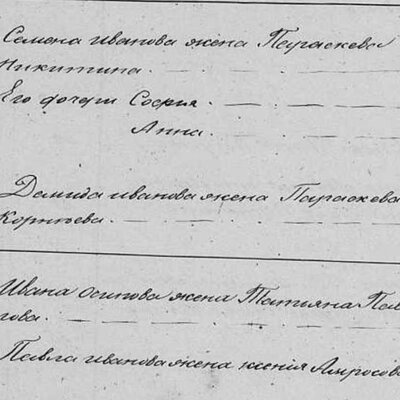 Семена иванова жена Параскева
Никитина.
Его дочери София.
Анна.
Демида иванова жена Параскева
Корнѣева.
Ивана осипова жена Татьяна Пав
лова.
Павла иванова жена ксенія Амросова